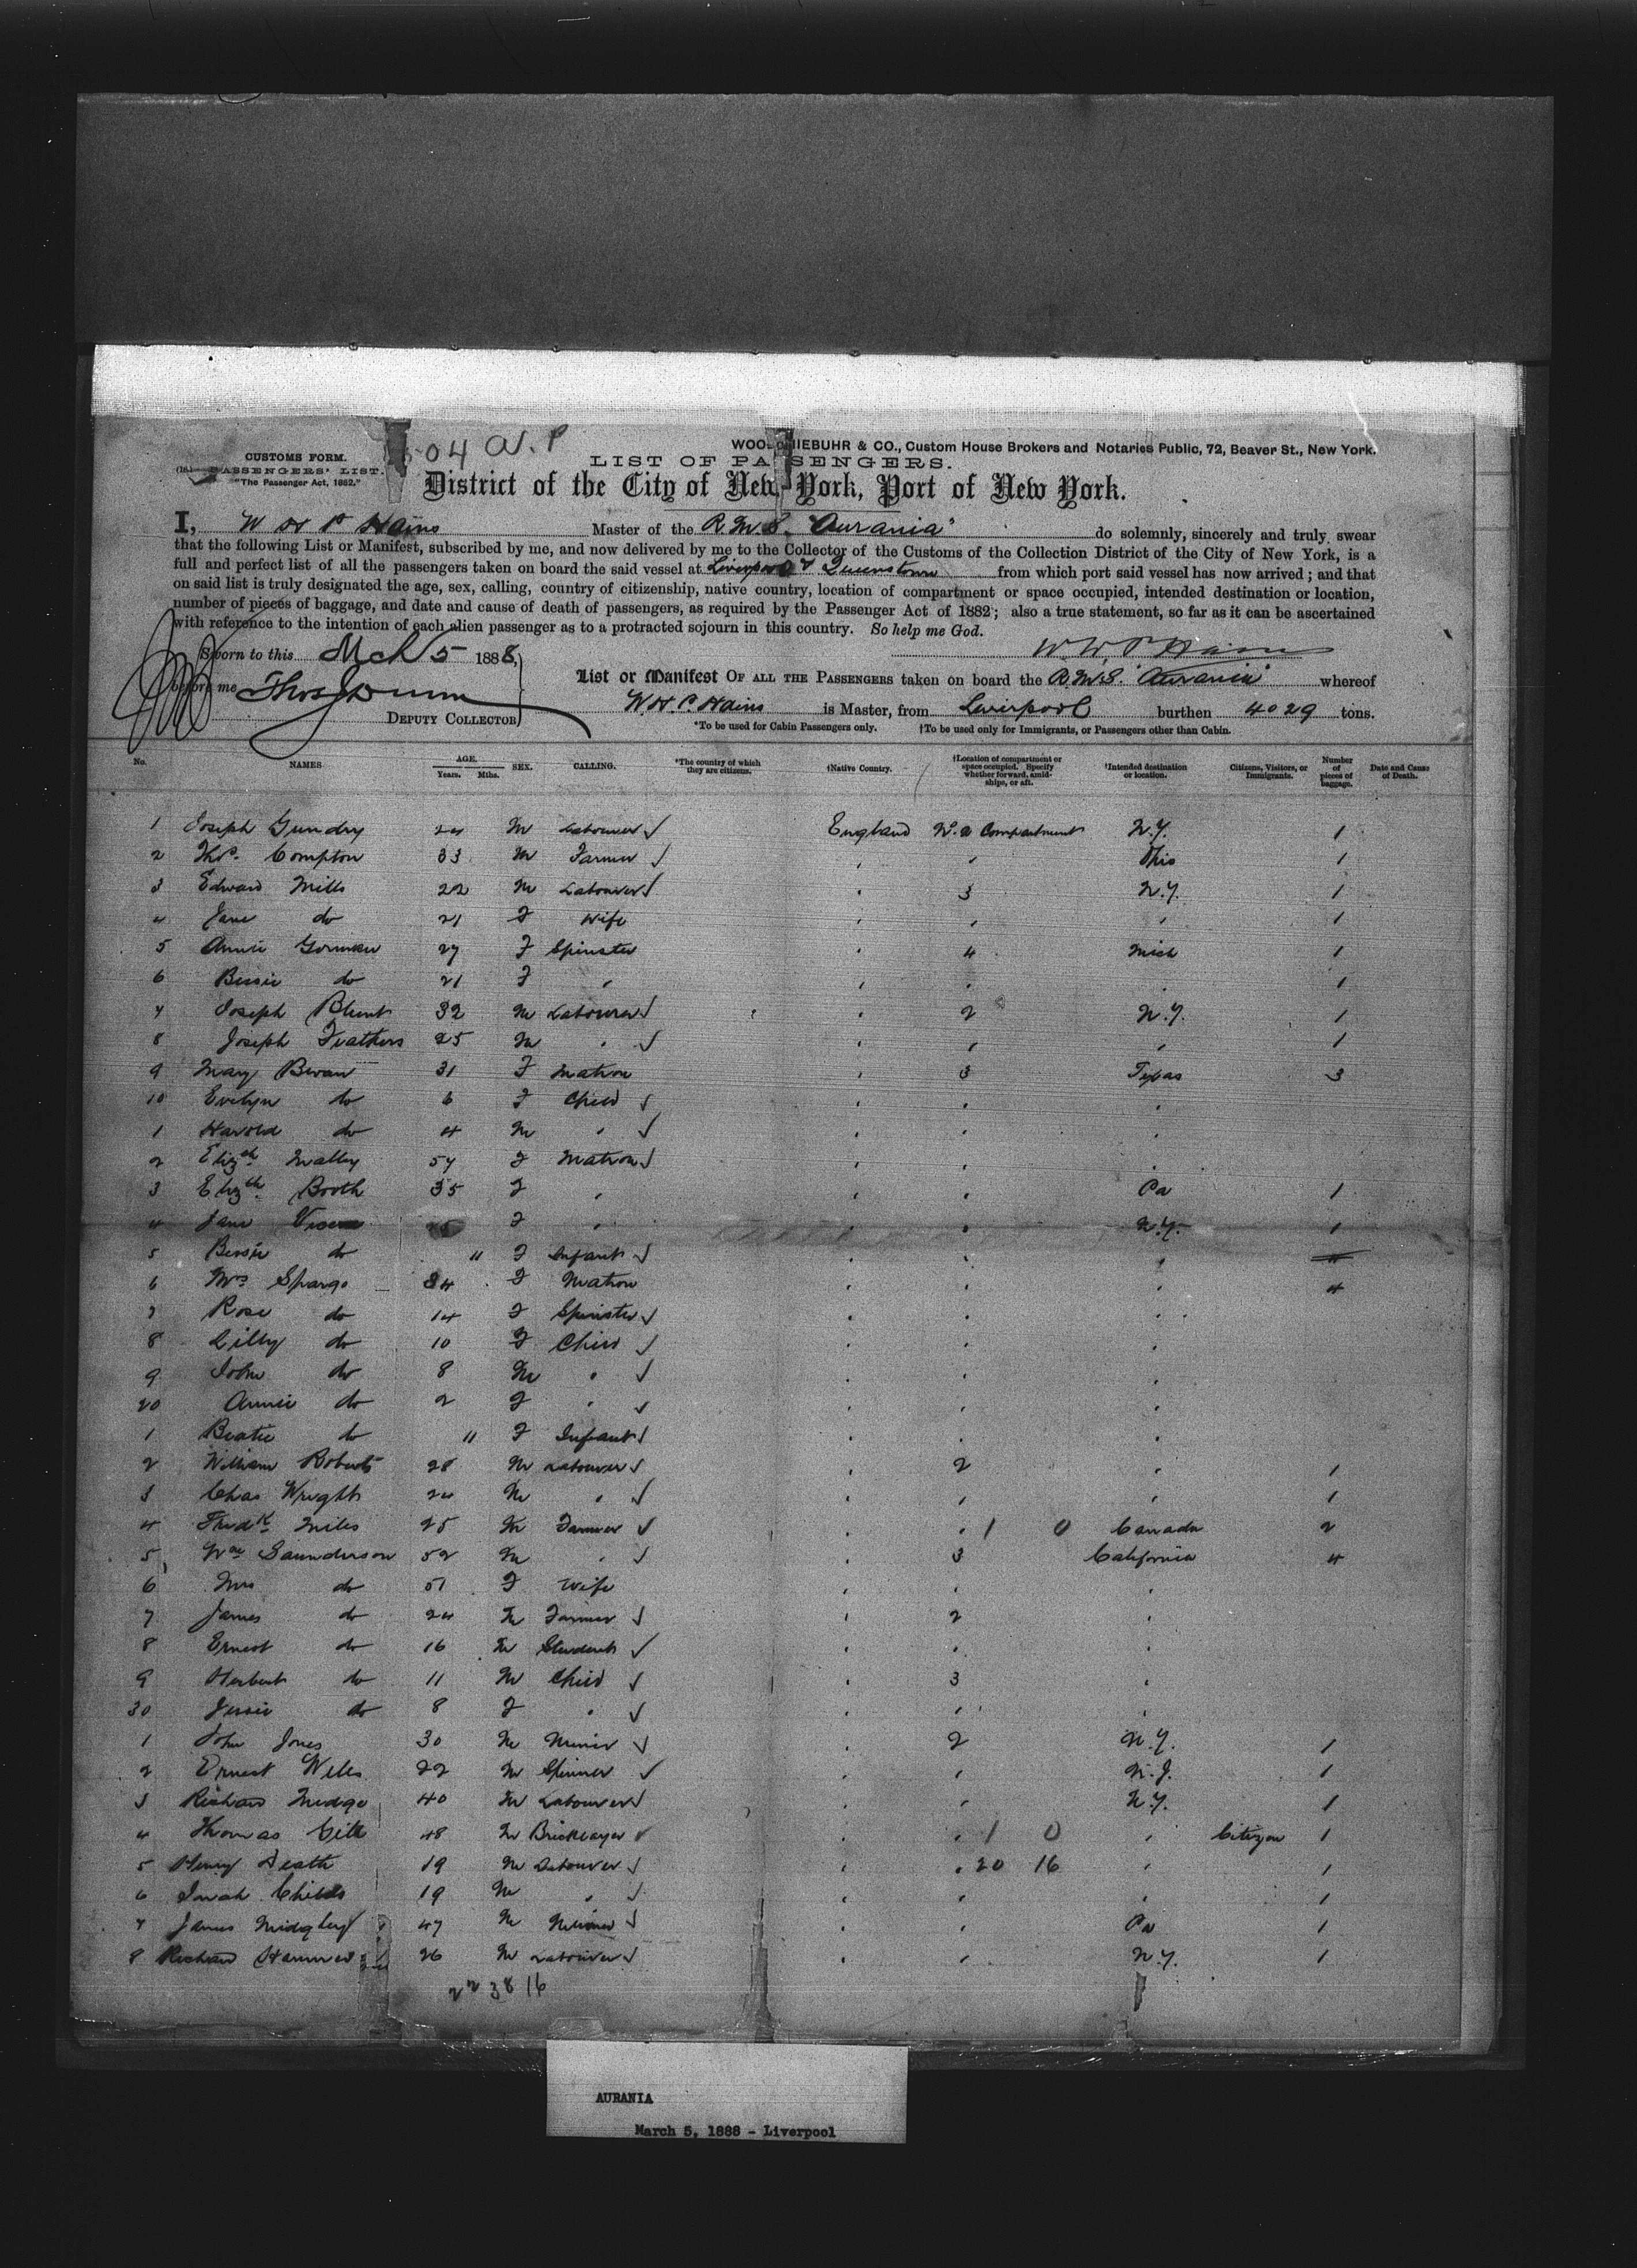 04
WOOD NIEBUHR & CO., Custom House Brokers and Notaries Public, 72, Beaver St., New York.
CUSTOMS FORM.
PASSENGERS' LIST.
"The Passenger Act, 1882."
LIST OF PASSENGERS.
District of the City of New York, Port of New York.
I, W H P Hains Master of the R.M.S. "Aurania" do solemnly, sincerely and truly swear
that the following List or Manifest, subscribed by me, and now delivered by me to the Collector of the Customs of the Collection District of the City of New York, is a
full and perfect list of all the passengers taken on board the said vessel at Liverpool & Queenstown from which port said vessel has now arrived; and that
on said list is truly designated the age, sex, calling, country of citizenship, native country, location of compartment or space occupied, intended destination or location,
number of pieces of baggage, and date and cause of death of passengers, as required by the Passenger Act of 1882; also a true statement, so far as it can be ascertained
with reference to the intention of each alien passenger as to a protracted sojourn in this country. So help me God.
Sworn to this Mch 5 1888,
W H P Hains
before me Thos J Dunn
DEPUTY COLLECTOR
List or Manifest OF ALL THE PASSENGERS taken on board the R.M.S. "Aurania" whereof
W.H.P. Hains is Master, from Liverpool burthen 4029 tons.
*To be used for Cabin Passengers only. †To be used only for Immigrants, or Passengers other than Cabin.
No. NAMES AGE. Years. Mths. SEX. CALLING. *The country of which they are citizens. †Native Country. †Location of compartment or space occupied. Specify whether forward, amidships, or aft. †Intended destination or location. Citizens, Visitors, or Immigrants. Number of pieces of baggage. Date and Cause of Death.
1 Joseph Gundry 24 M Labourer England No. 2 Compartment N.Y. 1
2 Thos. Compton 33 M Farmer " " Ohio 1
3 Edward Mills 22 M Labourer " 3 N.Y. 1
4 Jane do 21 F Wife " " " 1
5 Annie 27 F Spinster " 4 Mich 1
6 Bessie do 21 F " " " " 1
7 Joseph Blunt 32 M Labourer " 2 N.Y. 1
8 Joseph Feathers 25 M " " " " 1
9 Mary Bevan 31 F Matron " 3 Texas 3
10 Evelyn do 6 F Child " " "
1 Harold do 4 M " " " "
2 Elizth. Malley 57 F Matron " " "
3 Elizth. Booth 35 F " " " Pa 1
4 Jane 25 F " " " N.Y. 1
5 Bessie do 11 F Infant " " "
6 Mrs Spargo 34 F Matron " " " 4
7 Rose do 14 F Spinster " " "
8 Lilly do 10 F Child " " "
9 John do 8 M " " " "
20 Annie do 2 F " " " "
1 Beatie do 11 F Infant " " "
2 William Roberts 28 M Labourer " 2 " 1
3 Chas Wright 24 M " " " " 1
4 Fredk. Miles 25 M Farmer " " 1 0 Canada 2
5 Wm Saunderson 52 M " " 3 California 4
6 Mrs do 51 F Wife " " "
7 James do 24 M Farmer " 2 "
8 Ernest do 16 M Student " " "
9 Herbert do 11 M Child " 3 "
30 Jessie do 8 F " " " "
1 John Jones 30 M Miner " 2 N.Y. 1
2 Ernest Wells 22 M Spinner " " N.J. 1
3 Richard Midge 40 M Labourer " " N.Y. 1
4 Thomas Gill 48 M Bricklayer " " 1 0 " Citizen 1
5 Henry Heath 19 M Labourer " " 20 16 " 1
6 Childs 19 M " " " " 1
7 James Midgley 47 M " " Pa 1
8 Richard Hammer 26 M Labourer " " N.Y. 1
22 38 16
AURANIA
March 5, 1888 - Liverpool